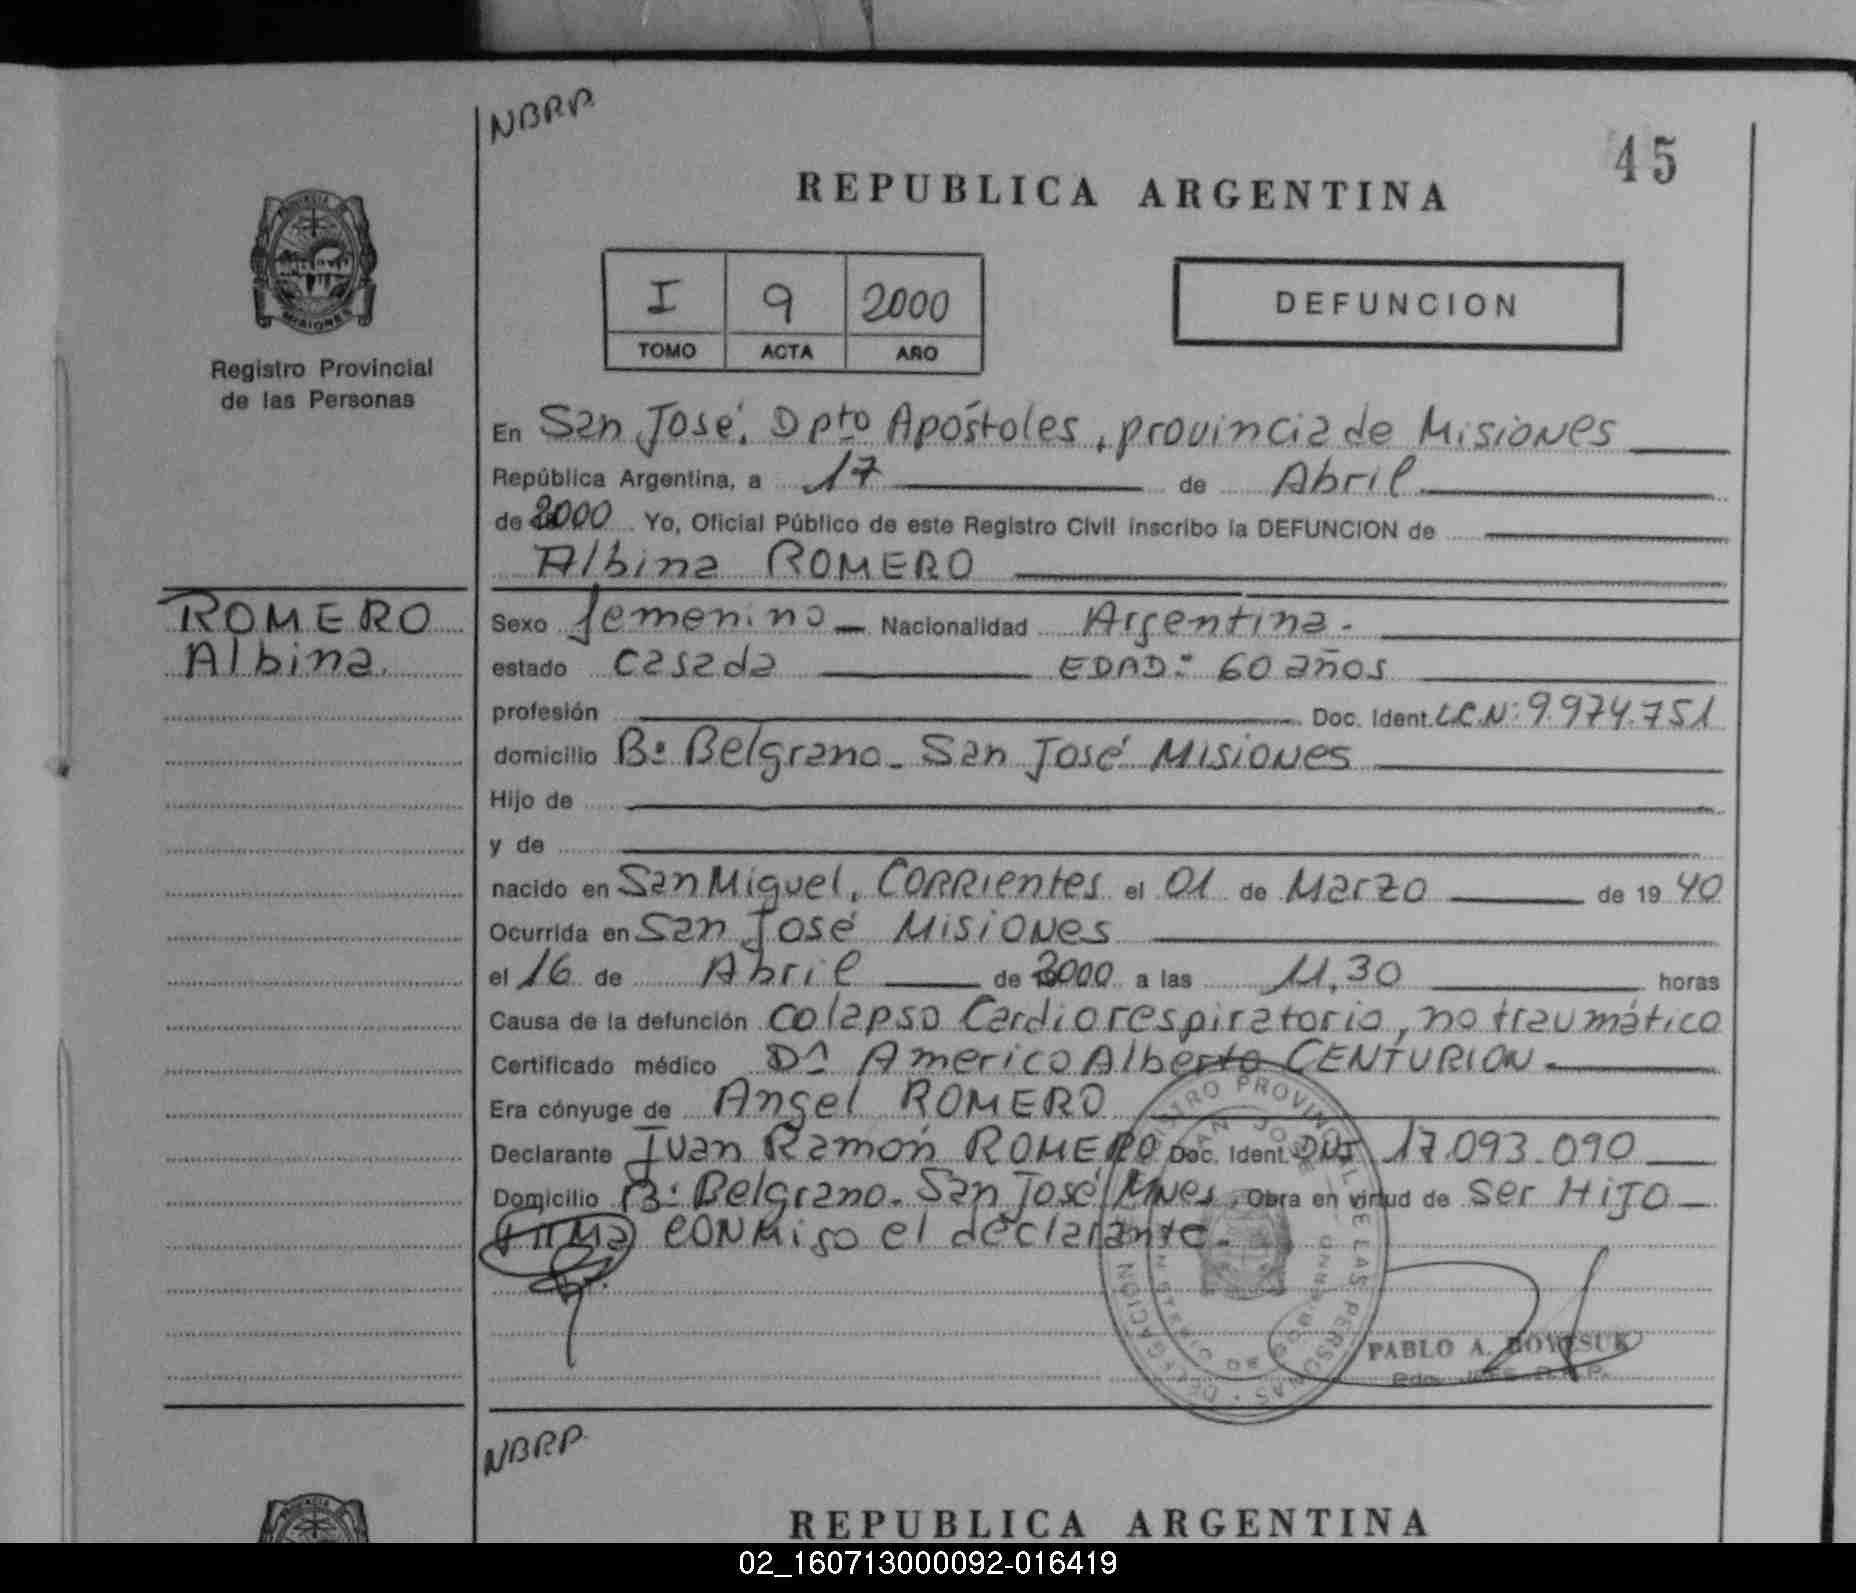 NBRP
45
REPUBLICA ARGENTINA
I 9 2000
TOMO ACTA AÑO
DEFUNCION
MISIONES
Registro Provincial
de las Personas
En San José, Dpto Apóstoles, provincia de Misiones
República Argentina, a 17 de Abril
de 2000 . Yo, Oficial Público de este Registro Civil inscribo la DEFUNCION de
Albina ROMERO
ROMERO
Albina.
Sexo femenino Nacionalidad Argentina.
estado casada EDAD: 60 años
profesión Doc. Ident. L.C.N: 9.974.751
domicilio Bº Belgrano. San José Misiones
Hijo de
y de
nacido en San Miguel, Corrientes el 01 de Marzo de 19 40
Ocurrida en San José Misiones
el 16 de Abril de 2000 a las 11,30 horas
Causa de la defunción colapso Cardiorespiratorio, no traumático
Certificado médico Dr Americo Alberto CENTURION
Era cónyuge de Angel ROMERO
Declarante Juan Ramón ROMERO Doc. Ident. DNI 17.093.090
Domicilio Bº Belgrano. San José Mnes. Obra en virtud de ser HiJO
firma conmigo el declarante.
REGISTRO PROVINCIAL DE LAS PERSONAS · DELEGACION
SAN JOSE
PABLO A. BOYESUK
NBRP
REPUBLICA ARGENTINA
02_160713000092-016419